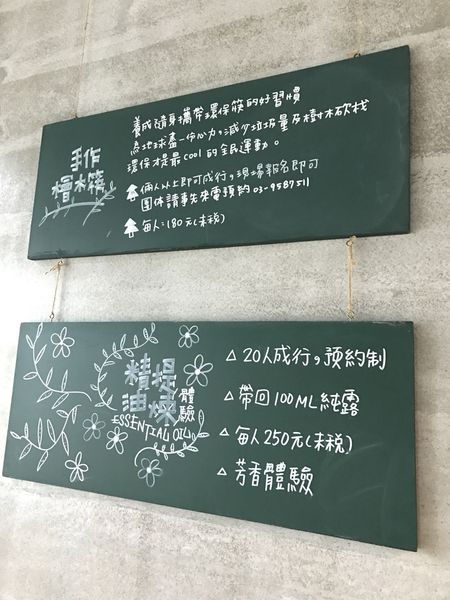 手作
檜木筷
養成隨身攜帶環保筷的好習慣
為地球盡一份心力,減少垃圾量及樹木砍伐
環保才是最cool的全民運動。
倆人以上即可成行,現場報名即可
團体請事先來電預約 03-9587511
每人:180元(未稅)
精提
油煉
體驗
ESSENTIAL OIL
△ 20人成行,預約制
△ 帶回100ML純露
△ 每人250元(未稅)
△ 芳香體驗